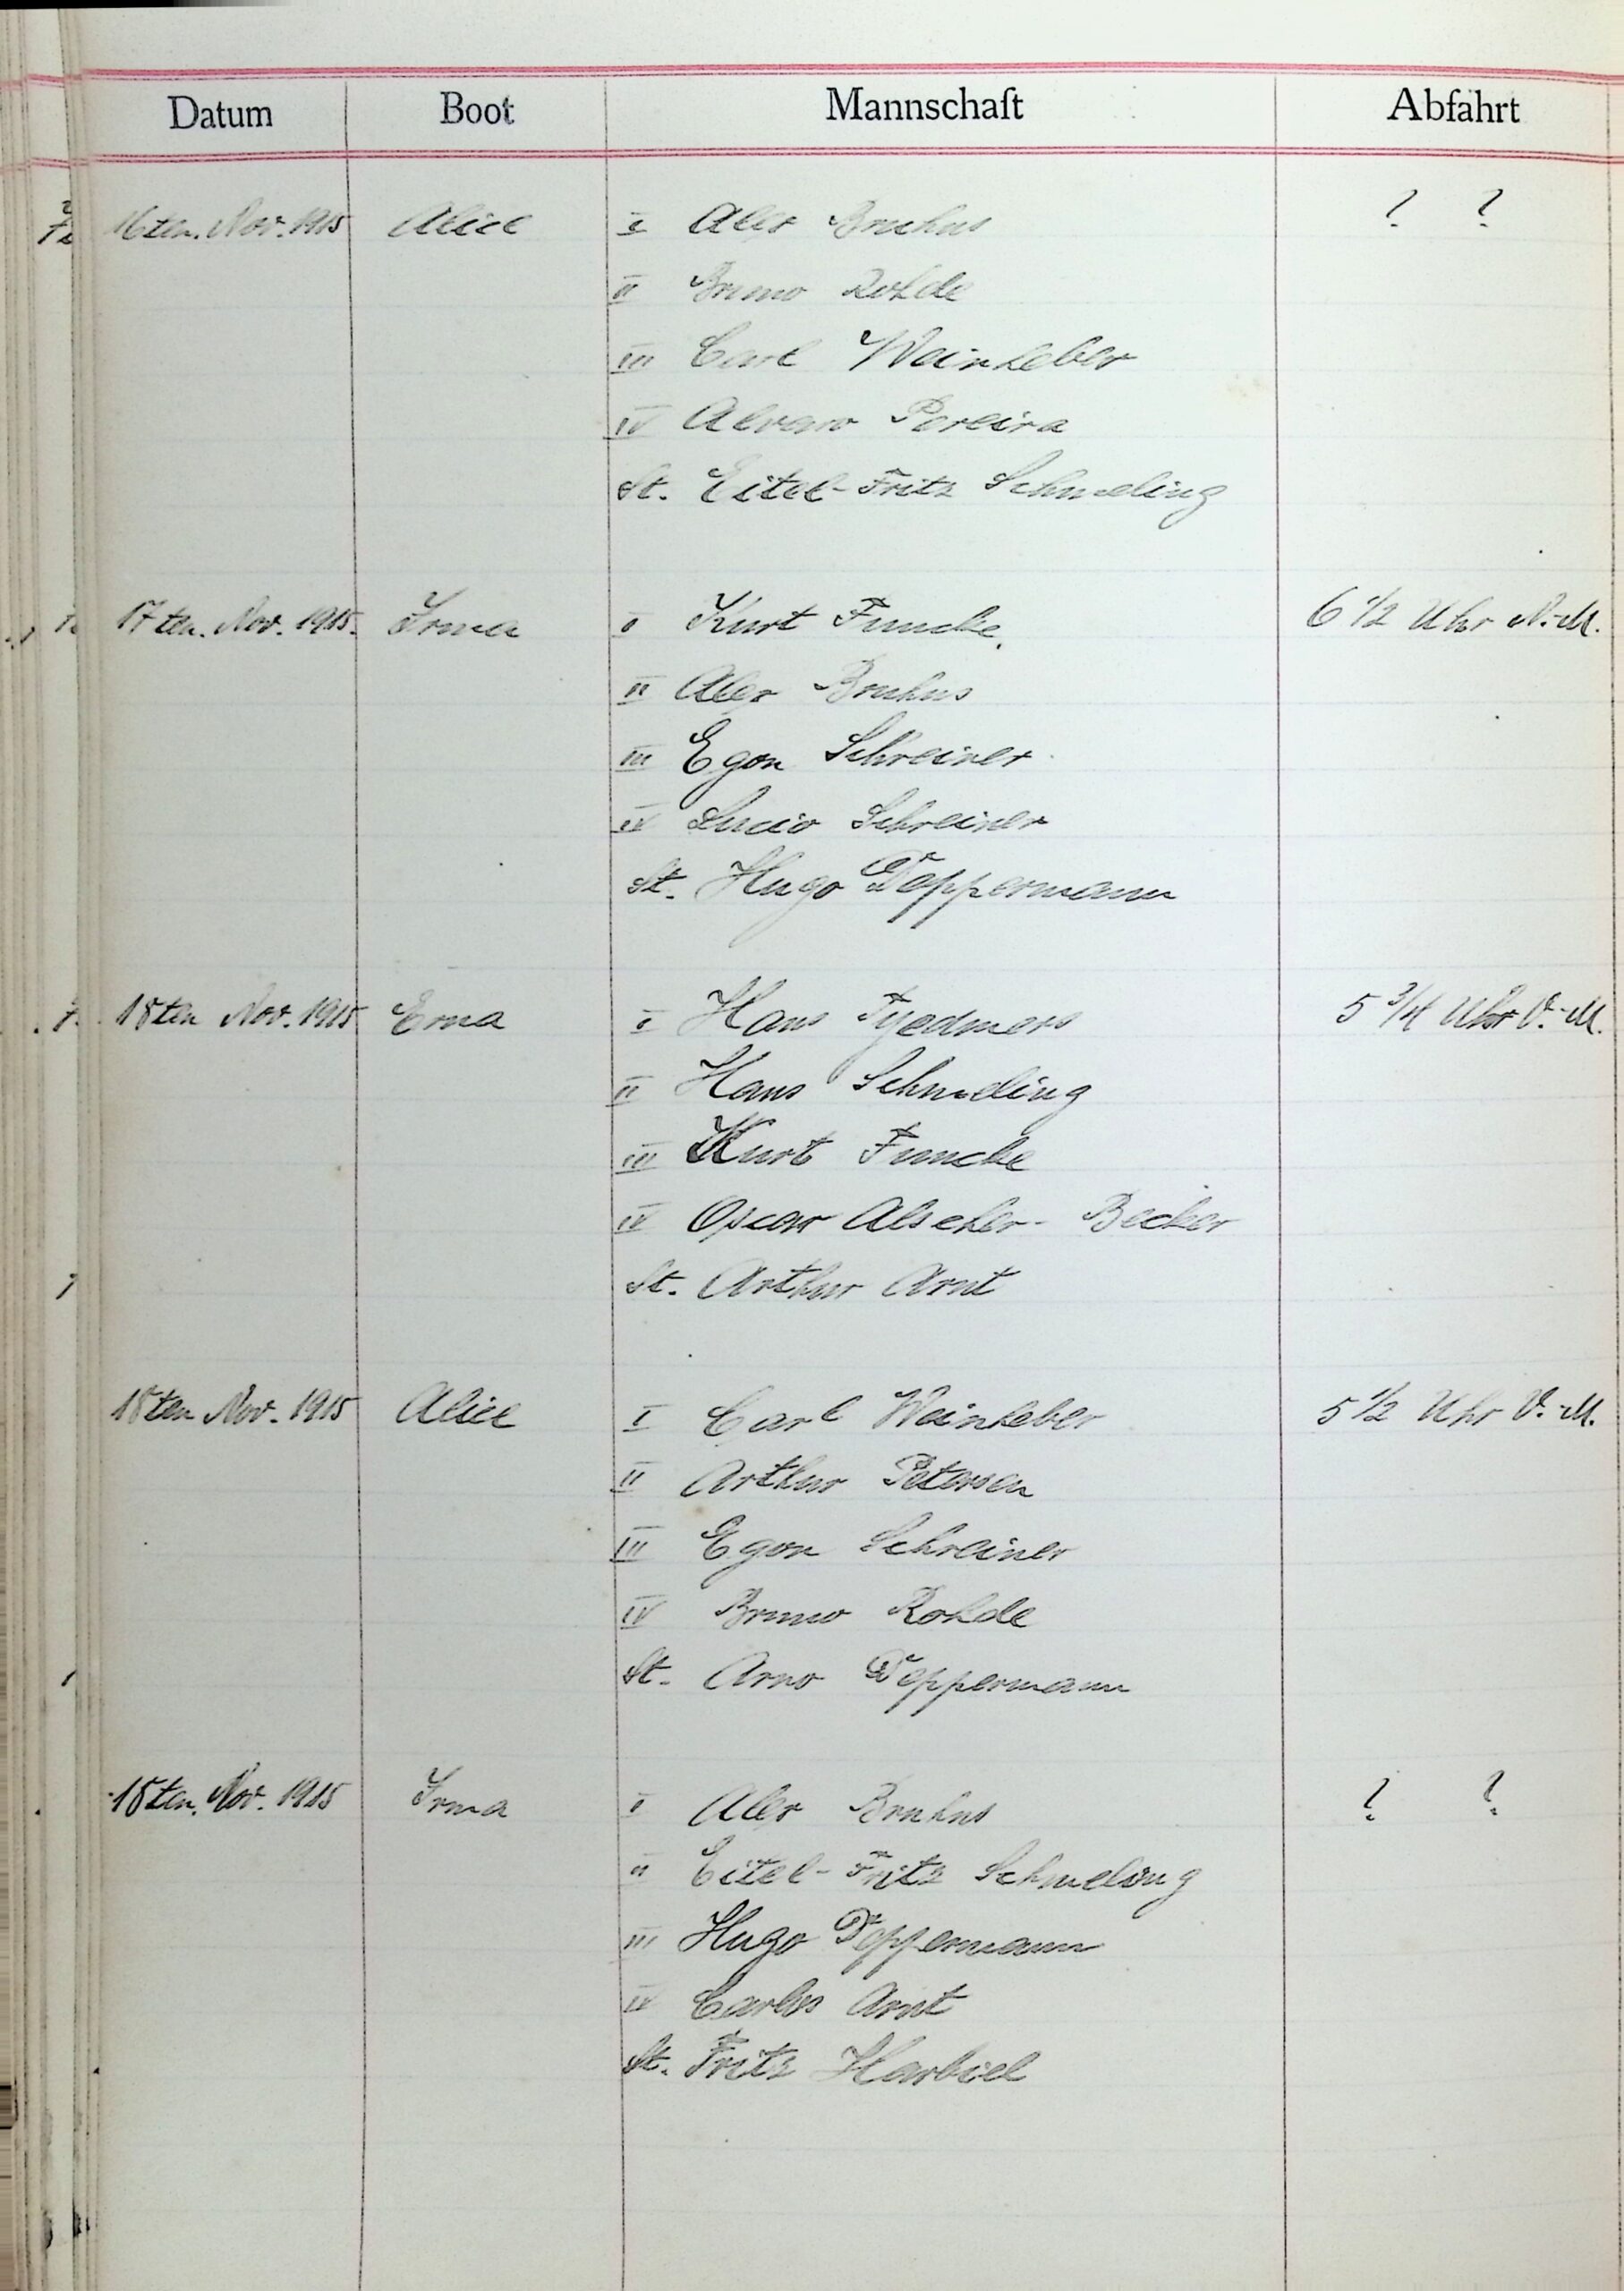 Datum Boot Mannschaft Abfahrt
16ten. Nov. 1915 Alice I Alex Bruhns ? ?
II Bruno Rohde
III Carl Weinheber
IV Alvaro Pereira
St. Eitel-Fritz Schmeling
17ten. Nov. 1915. Irma I Kurt Funcke. 6 1/2 Uhr N.-M.
II Alex Bruhns
III Egon Schreiner
IV Lucio Schreiner
St. Hugo Deppermann
18ten Nov. 1915 Erna I Hans Tyedmers 5 3/4 Uhr V.-M.
II Hans Schmeling
III Kurt Funcke
IV Oscar Alscher-Becker
St. Arthur Arnt
18ten Nov. 1915 Alice I Carl Weinheber 5 1/2 Uhr V.-M.
II Arthur Petersen
III Egon Schreiner
IV Bruno Rohde
St. Arno Deppermann
18ten. Nov. 1915 Irma I Alex Bruhns ? ?
II Eitel-Fritz Schmeling
III Hugo Deppermann
IV Carlos Arnt
St. Fritz Harbiel